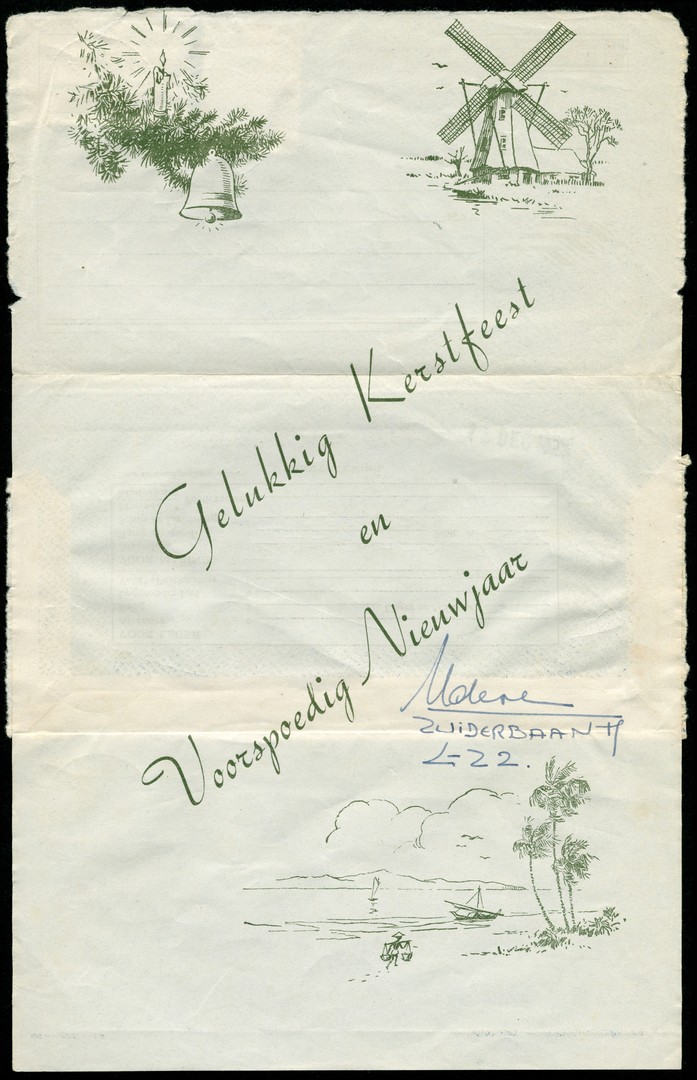 Gelukkig Kerstfeest
en
Voorspoedig Nieuwjaar
ZUIDERBAAN H
L 22.